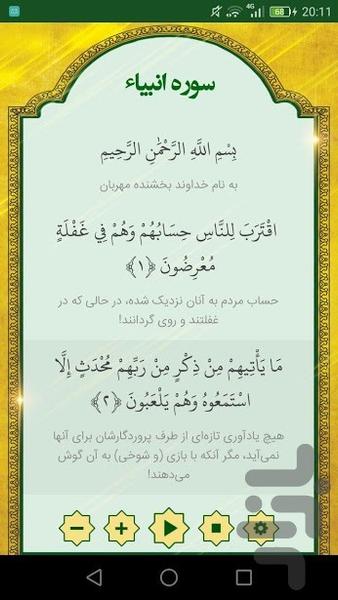 4G 68 20:11
سوره انبیاء
بِسْمِ اللَّهِ الرَّحْمَٰنِ الرَّحِيمِ
به نام خداوند بخشنده مهربان
اقْتَرَبَ لِلنَّاسِ حِسَابُهُمْ وَهُمْ فِي غَفْلَةٍ
مُعْرِضُونَ ﴿١﴾
حساب مردم به آنان نزدیک شده، در حالی که در
غفلتند و روی گردانند!
مَا يَأْتِيهِمْ مِنْ ذِكْرٍ مِنْ رَبِّهِمْ مُحْدَثٍ إِلَّا
اسْتَمَعُوهُ وَهُمْ يَلْعَبُونَ ﴿٢﴾
هیچ یادآوری تازه‌ای از طرف پروردگارشان برای آنها
نمی‌آید، مگر آنکه با بازی (و شوخی) به آن گوش
می‌دهند!
بازار